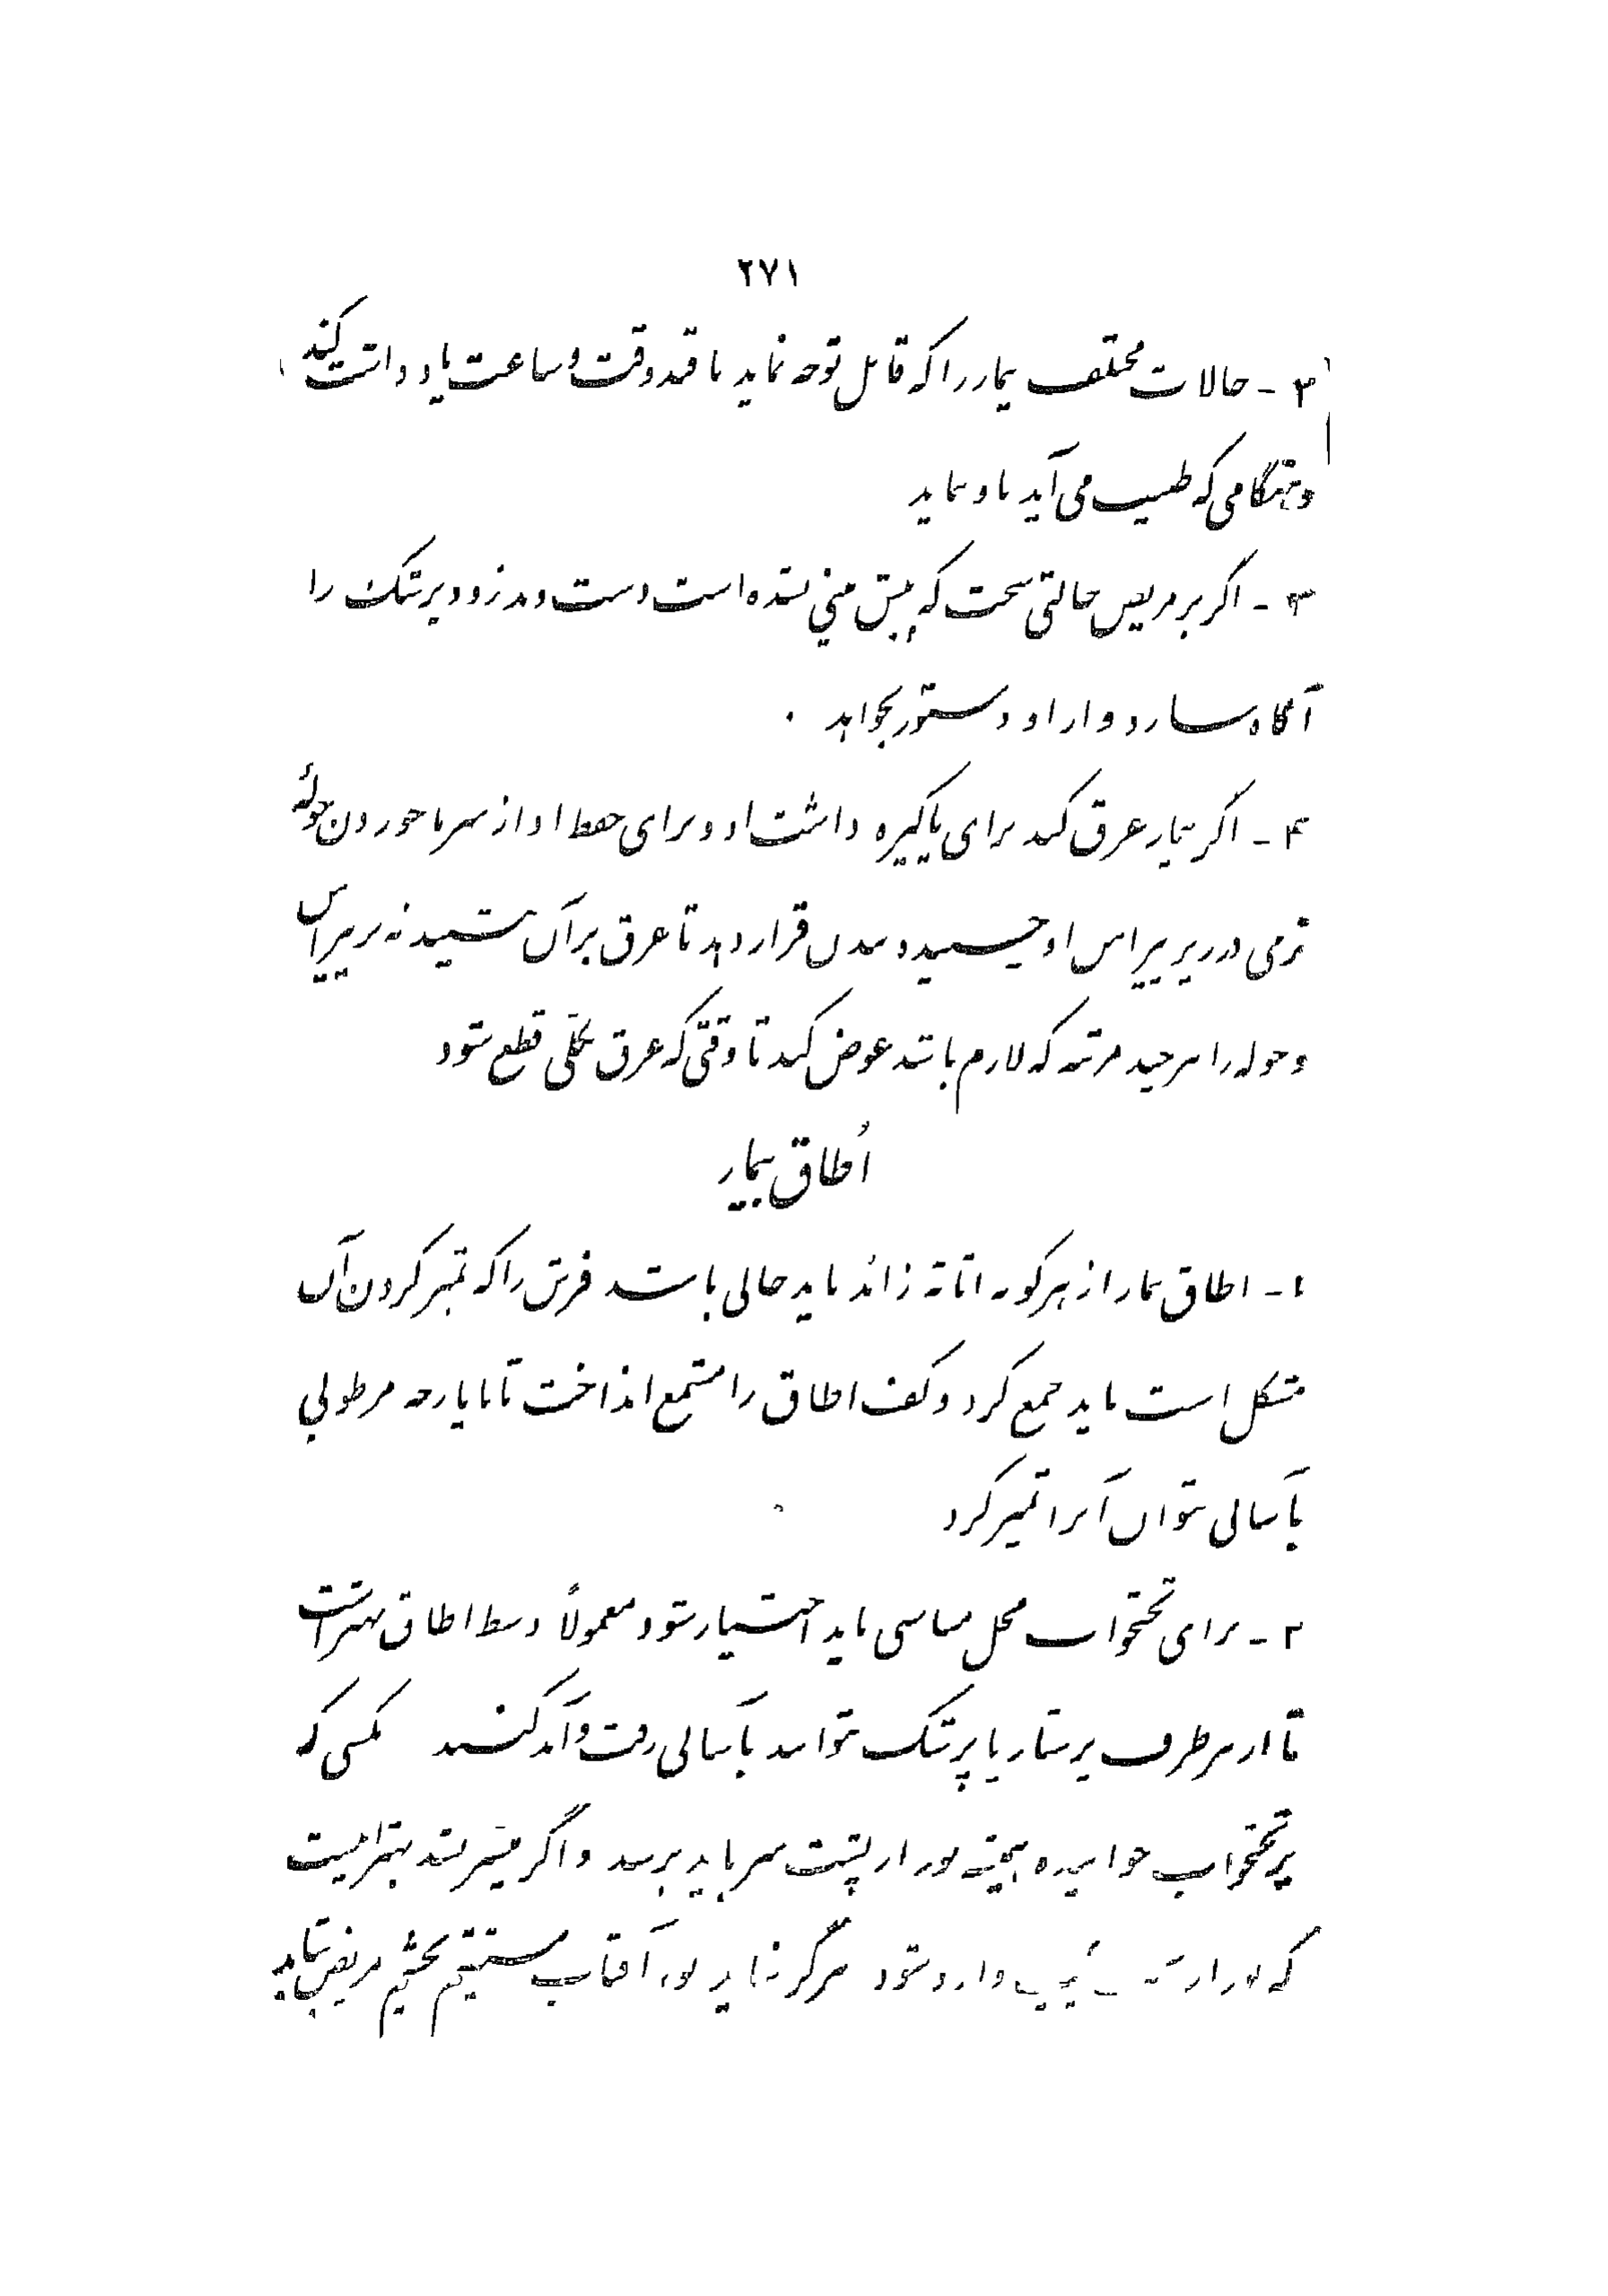 ۲۷۱
۲ - حالات مختلف بیمار را که قابل توجه نماید با قید وقت و ساعت یادداشت کند
و هنگامی که طبیب می‌آید باو نماید
۳ - اگر بر مریض حالتی سخت که پیش بینی نشده است دست دهد زود پزشک را
آگاه سازد و از او دستور بخواهد .
۴ - اگر بیمار عرق کند برای پاکیزه داشت او و برای حفظ او از سرما خوردن حولهٔ
نرمی در زیر پیراهن او چسبیده ببدن قرار دهد تا عرق بر آن نشیند نه بر پیراهن
و حوله را هر چند مرتبه که لازم باشد عوض کند تا وقتی که عرق بکلی قطع شود
اُطاق بیمار
۱ - اطاق بیمار از هرگونه اثاثه زائد باید خالی باشد فرش را که تمیز کردن آن
مشکل است باید جمع کرد و کف اطاق را مشمع انداخت تا با پارچه مرطوبی
بآسانی بتوان آنرا تمیز کرد
۲ - برای تختخواب محل مناسبی باید اختیار شود معمولاً وسط اطاق بهتر است
تا از هر طرف پرستار یا پزشک بتوانند بآسانی رفت و آمد کنند بکسی که
بر تختخواب خوابیده همیشه نور از پشت سر باید برسد و اگر میسر نشد بهتر اینست
که نور از سمت چپ وارد شود هرگز نباید نور آفتاب مستقیم بچشم مریض بتابد